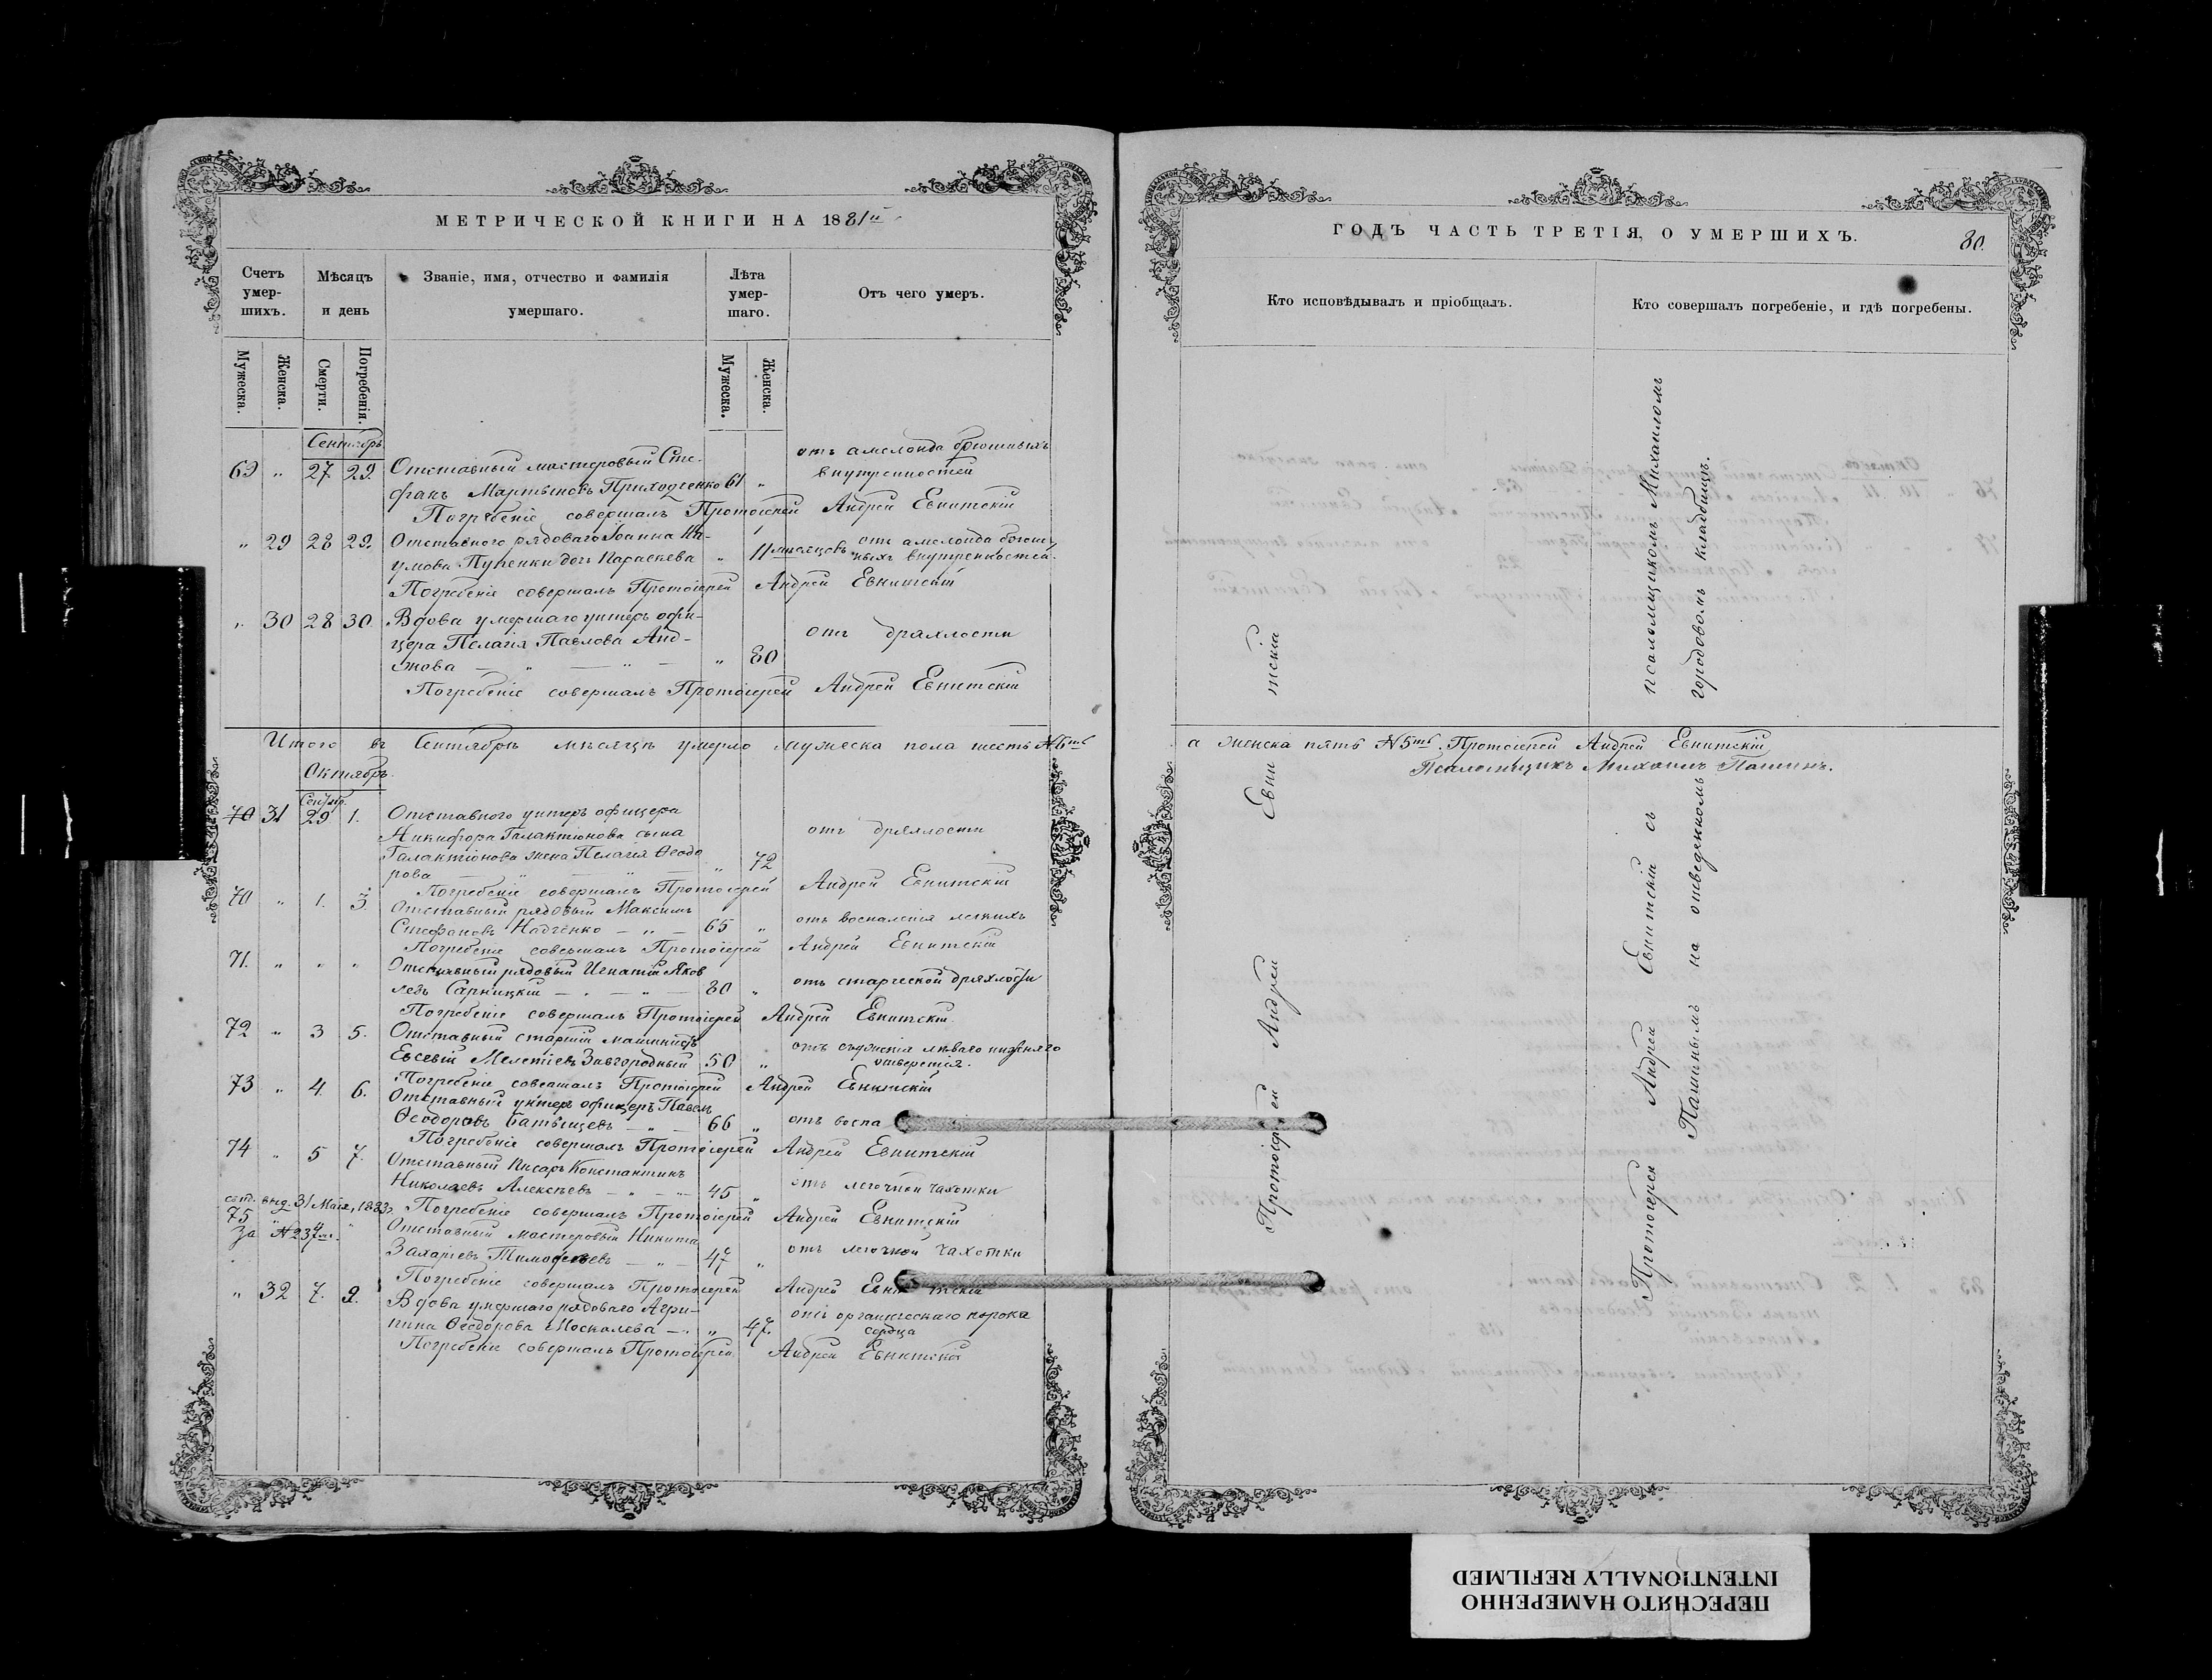 МЕТРИЧЕСКОЙ КНИГИ НА 1881й
Счетъ умершихъ.
Мѣсяцъ и день
Званіе, имя, отчество и фамилія умершаго.
Лѣта умершаго.
Отъ чего умеръ.
Мужеска.
Женска.
Смерти.
Погребенія.
Мужеска.
Женска.
Сентябрь
69 " 27 29. Отставный мастеровый Сте-
фанъ Мартыновъ Приходченко 61 "
внутренностей
Погребеніе совершалъ Протоіерей Андрей Евнитскій
" 29 28 29. Отставного рядоваго Іоанна На-
умова Пупенки дочь Параскева " 11 мѣсяцовъ
ныхъ внутренностей.
Погребеніе совершалъ Протоіерей Андрей Евнитскій
" 30 28 30. Вдова умершаго унтеръ офи-
цера Пелагія Павлова
" 80 отъ дряхлости
Погребеніе совершалъ Протоіерей Андрей Евнитскій
Итого въ Сентябрѣ мѣсяцѣ умерло мужеска пола шесть №6ть
Октябрь.
Сентяб.
70 31 29 1. Отставного унтеръ офицера
Никифора Галактіонова сына
Галактіонова жена Пелагія Ѳеодо
рова " 72 отъ дряхлости
Погребеніе совершалъ Протоіерей Андрей Евнитскій
70 " 1. 3. Отставный рядовый Максимъ
Стефановъ Надченко 65 " отъ воспаленія легкихъ
Погребеніе совершалъ Протоіерей Андрей Евнитскій
71. " " " Отставный рядовый Игнатій Яков
левъ Сарницкій 80 " отъ старческой дряхлости
Погребеніе совершалъ Протоіерей Андрей Евнитскій
72 " 3 5. Отставный старшій машинистъ
Евсевій Мелетіевъ Завгородный 50 " отъ съуженія лѣваго
отверстія.
Погребеніе совершалъ Протоіерей Андрей Евнитскій
73 " 4. 6. Отставный унтеръ офицеръ Павелъ
Ѳеодоровъ Батищевъ 66 " отъ воспа
Погребеніе совершалъ Протоіерей Андрей Евнитскій
74 " 5 7. Отставный писарь Константинъ
Николаевъ Алексѣевъ 45 " отъ легочной чахотки
выд. 31 Мая, 1883.
Погребеніе совершалъ Протоіерей Андрей Евнитскій
75 " " Отставный мастеровый Никита
За №237
Захаріевъ Тимоѳеевъ 47 " отъ легочной чахотки
Погребеніе совершалъ Протоіерей Андрей Евнитскій
" 32 7. 9. Вдова умершаго рядоваго Агри-
пина Ѳеодорова Москалева " 47. отъ органическаго порока
сердца
Погребеніе совершалъ Протоіерей Андрей Евнитскій
ГОДЪ ЧАСТЬ ТРЕТІЯ, О УМЕРШИХЪ.
80.
Кто исповѣдывалъ и пріобщалъ.
Кто совершалъ погребеніе, и гдѣ погребены.
а женска пять №5ть. Протоіерей Андрей Евнитскій
Псаломщикъ Михаилъ Пашинъ.
Протоіерей Андрей Евнитскій
Протоіерей Андрей Евнитскій съ псаломщикомъ Михаиломъ
Пашинымъ на отведенномъ городовомъ кладбищѣ.
ПЕРЕСНЯТО НАМЕРЕННО
INTENTIONALLY REFILMED